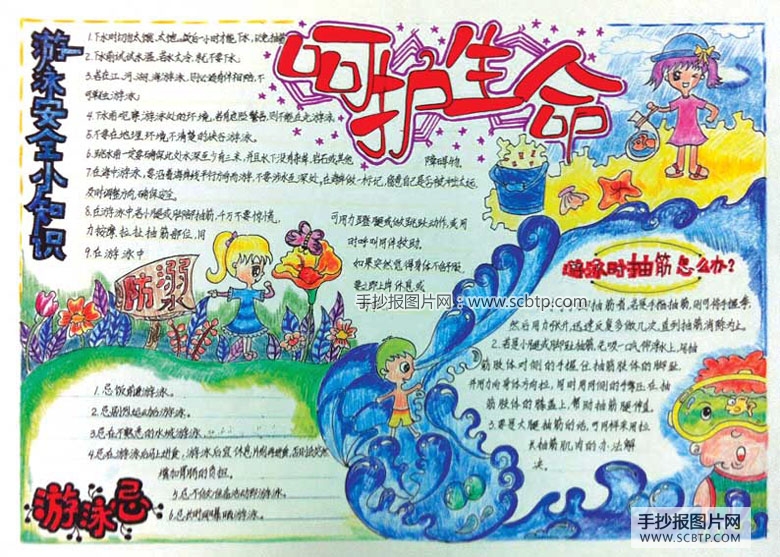 呵护生命
游泳安全小知识
1.下水时切勿太饿、太饱。饭后一小时才能下水，以免抽筋。
2.下水前试试水温，若水太冷，就不要下水。
3.若在江、河、湖、海游泳，则必须有伴相陪，不
可单独游泳。
4.下水前观察游泳处的环境，若有危险警告，则不能在此游泳。
5.不要在地理环境不清楚的峡谷游泳。
6.跳水前一定要确保此处水深至少有三米，并且水下没有杂草、岩石或其他
障碍物。
7.在海中游泳，要沿着海岸线平行方向而游
8.在游泳中若小腿或脚部抽筋，千万不要惊慌，
可用力蹬腿或做跳跃动作，或用
力按摩、拉扯抽筋部位，同
时呼叫同伴救助。
9.在游泳中
如果突然觉得身体不舒服
要立即上岸休息或
防溺
手抄报图片网：www.scbtp.com
游泳时抽筋怎么办？
抽筋者，若是手指抽筋，则可将手握拳，
然后用力张开，迅速反复多做几次，直到抽筋消除为止。
2.若是小腿或脚趾抽筋，先吸一口气仰浮水上，用抽
筋肢体对侧的手握住抽筋肢体的脚趾，
并用力向身体方向拉，同时用同侧的手掌压在抽
筋肢体的膝盖上，帮助抽筋腿伸直。
3.要是大腿抽筋的话，可同样采用拉
长抽筋肌肉的办法解
决。
游泳忌
1.忌饭前饭后游泳。
2.忌剧烈运动后游泳。
3.忌在不熟悉的水域游泳。
4.忌在游泳后马上进食
增加胃肠的负担。
6.忌长时间曝晒游泳。
手抄报图片网
WWW.SCBTP.COM